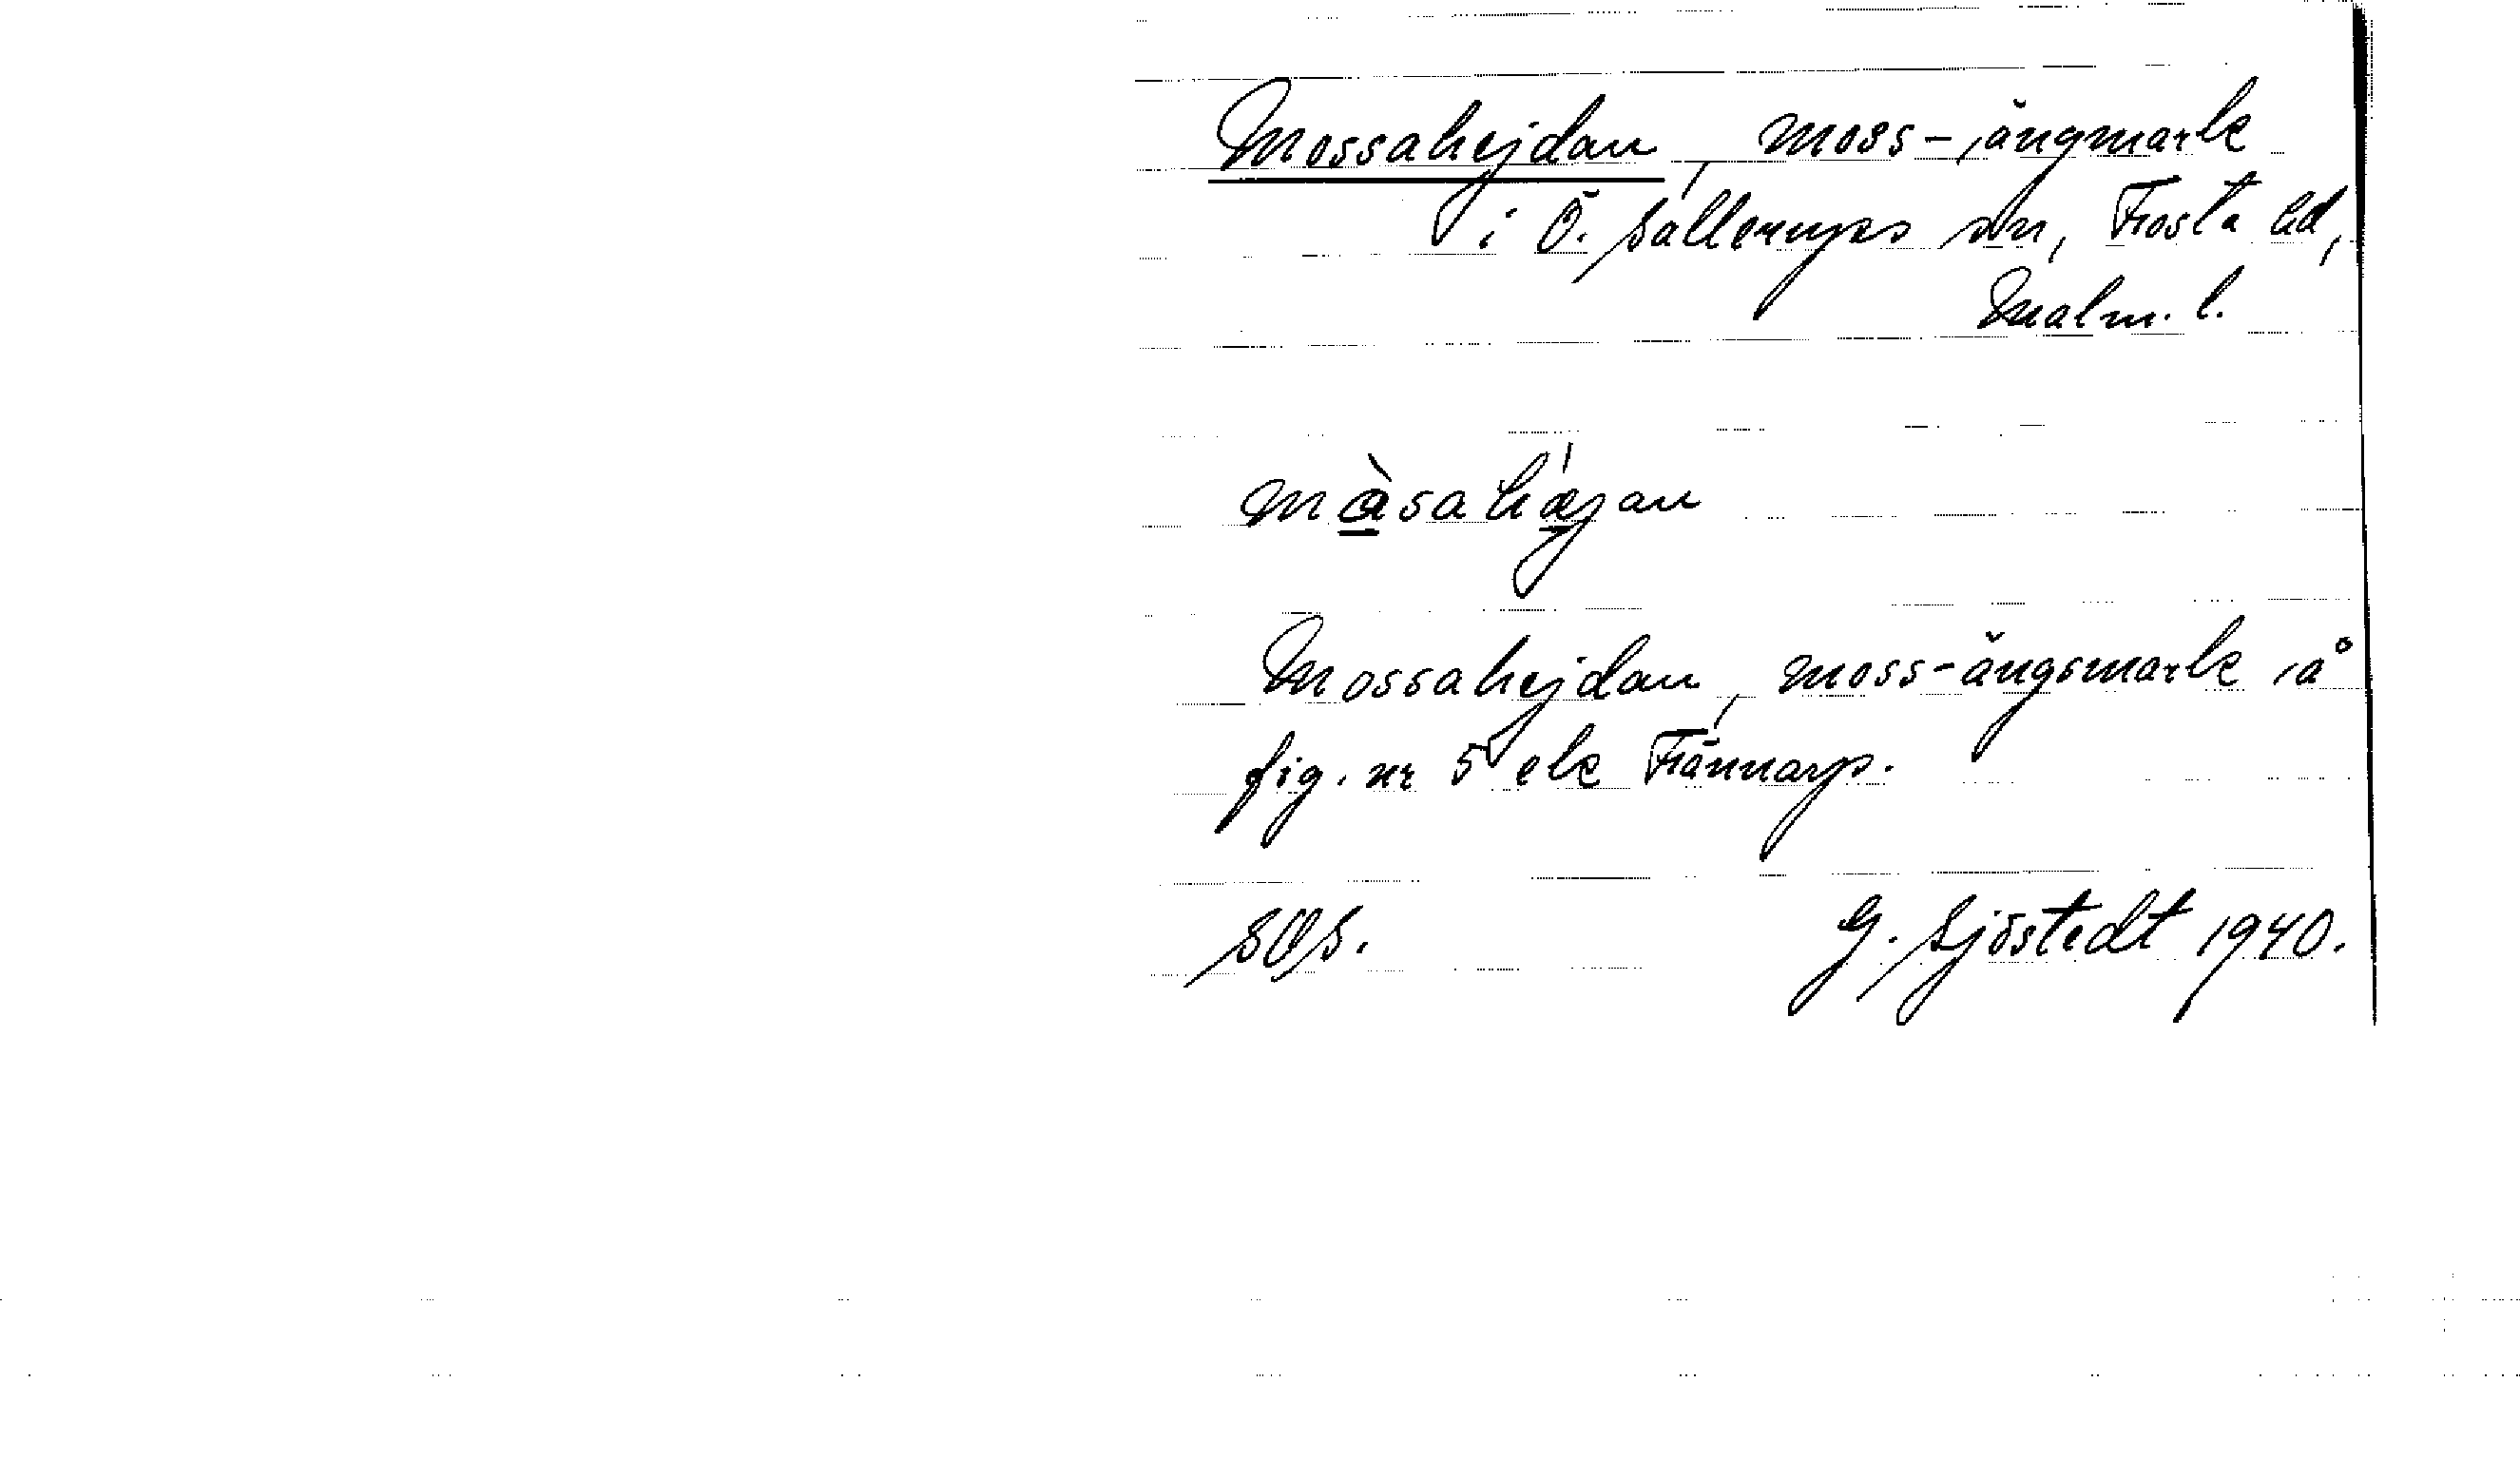 Mossahejdan, moss-, ängmark
i Ö. Sallerups sn, Frosta hd,
Malm. l.
màsahǽjan
Mossahejdan, moss-ängsmark å
fig. nr 5 ek Frännarp.
SOS. G. Sjöstedt 1940.